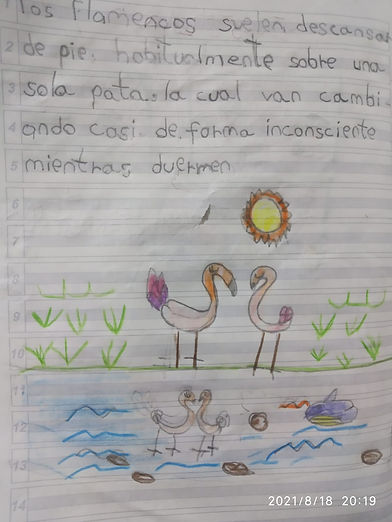 1 los flamencos suelen descansar
2 de pie. habitualmente sobre una
3 sola pata. la cual van cambi
4 ando casi. de. forma inconsciente
5 mientras duermen
6
7
8
9
10
11
12
13
14
2021/8/18 20:19